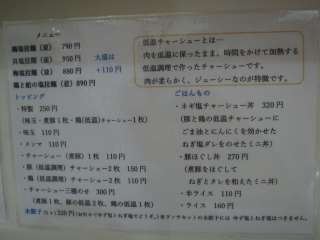 メニュー
鶏塩拉麺（並） 790円
貝塩拉麺（並） 950円
梅塩拉麺（並） 880円
大盛は
＋110円
鶏と蛤の塩拉麺（並）890円
トッピング
・特製 250円
（味玉・煮豚１枚・鶏（低温）チャーシュー１枚）
・味玉 110円
・メンマ 110円
・チャーシュー（煮豚）１枚 110円
・豚（低温調理）チャーシュー２枚 150円
・鶏（低温調理）チャーシュー２枚 110円
・チャーシュー三種のせ 300円
（煮豚１枚、低温の豚２枚、鶏の低温１枚）
低温チャーシューとは―
肉を低温に保ったまま、時間をかけて加熱する
低温調理で作ったチャーシューです。
肉が柔らかく、ジューシーなのが特徴です。
ごはんもの
・ネギ塩チャーシュー丼 320円
（豚と鶏の低温チャーシューに
ごま油とにんにくを効かせた
ねぎ塩ダレをのせたミニ丼）
・豚ほぐし丼 270円
（煮豚をほぐして
ねぎとタレを和えたミニ丼）
・半ライス 110円
・ライス 160円
水餃子 220円